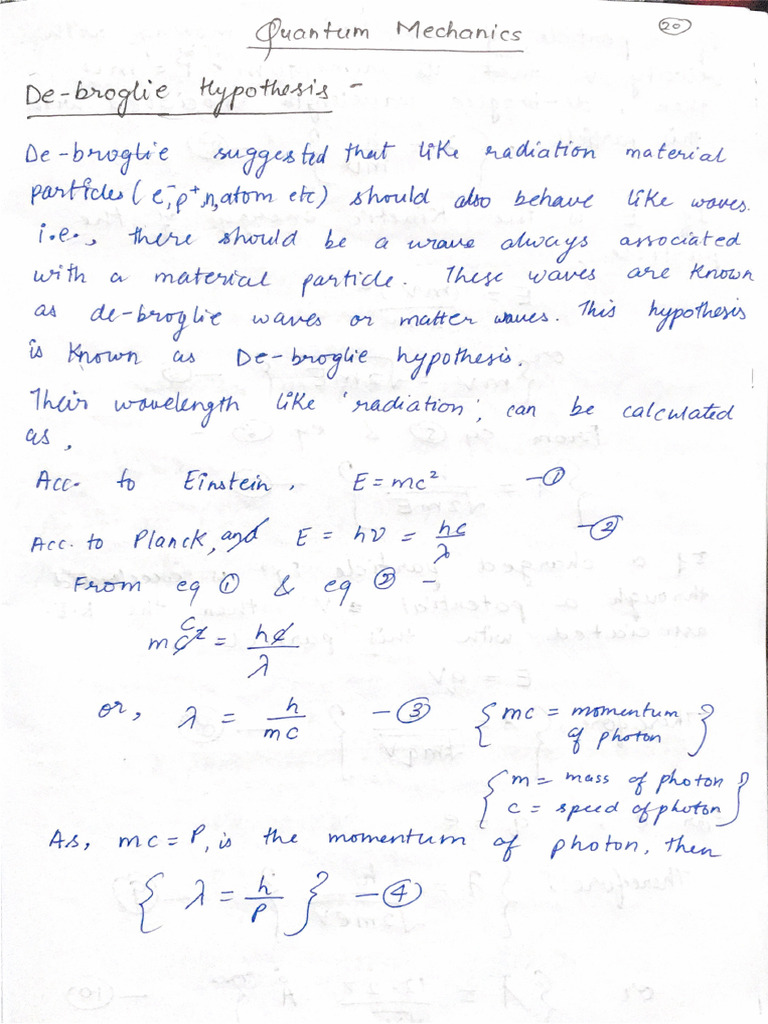 Quantum Mechanics
20
De-broglie Hypothesis -
De-broglie suggested that like radiation material
particles (e⁻, p⁺, n, atom etc) should also behave like waves.
i.e., there should be a wave always associated
with a material particle. These waves are known
as de-broglie waves or matter waves. This hypothesis
is known as De-broglie hypothesis.
Their wavelength like 'radiation', can be calculated
as,
Acc. to Einstein, E = mc² -①
Acc. to Planck, and E = hν = hc/λ -②
From eq ① & eq ② -
mc² = hc/λ
or, λ = h/mc -③ {mc = momentum
of photon}
{m = mass of photon
c = speed of photon}
As, mc = P, is the momentum of photon, then
{λ = h/P} -④